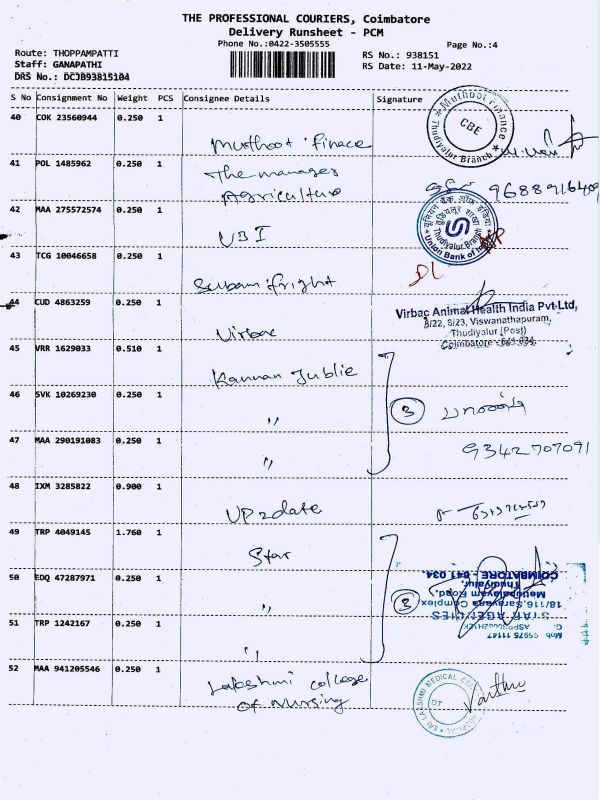 THE PROFESSIONAL COURIERS, Coimbatore
Delivery Runsheet - PCM
Phone No.:0422-3505555
Page No.:4
Route: THOPPAMPATTI
Staff: GANAPATHI
DRS No.: DCJB93815104
RS No.: 938151
RS Date: 11-May-2022
S No Consignment No Weight PCS Consignee Details Signature
40 COK 23560944 0.250 1
Muthoot Finace
Muthoot Finance
CBE
Thudiyalur Branch
41 POL 1485962 0.250 1
The manager
Agriculture
9688916409
42 MAA 275572574 0.250 1
UBI
Thudiyalur Branch
Union Bank of India
43 TCG 10046658 0.250 1
Subam fright
DL
44 CUD 4863259 0.250 1
Virbac
Virbac Animal Health India Pvt-Ltd,
8/22, 8/23, Viswanathapuram,
Thudiyalur (Post)
Coimbatore - 641 034.
45 VRR 1629033 0.510 1
Kannan Jublie
46 SVK 10269230 0.250 1
"
3
47 MAA 290191083 0.250 1
"
9342707091
48 IXM 3285822 0.900 1
UP2date
49 TRP 4049145 1.760 1
Star
50 EDQ 47287971 0.250 1
"
3
STAR AGENCIES
18/116, Saravana Complex
Mettupalayam Road,
Thudiyalur,
COIMBATORE - 641 034.
51 TRP 1242167 0.250 1
"
52 MAA 941205546 0.250 1
Lakshmi college
of Nursing
SRI LAKSHMI MEDICAL